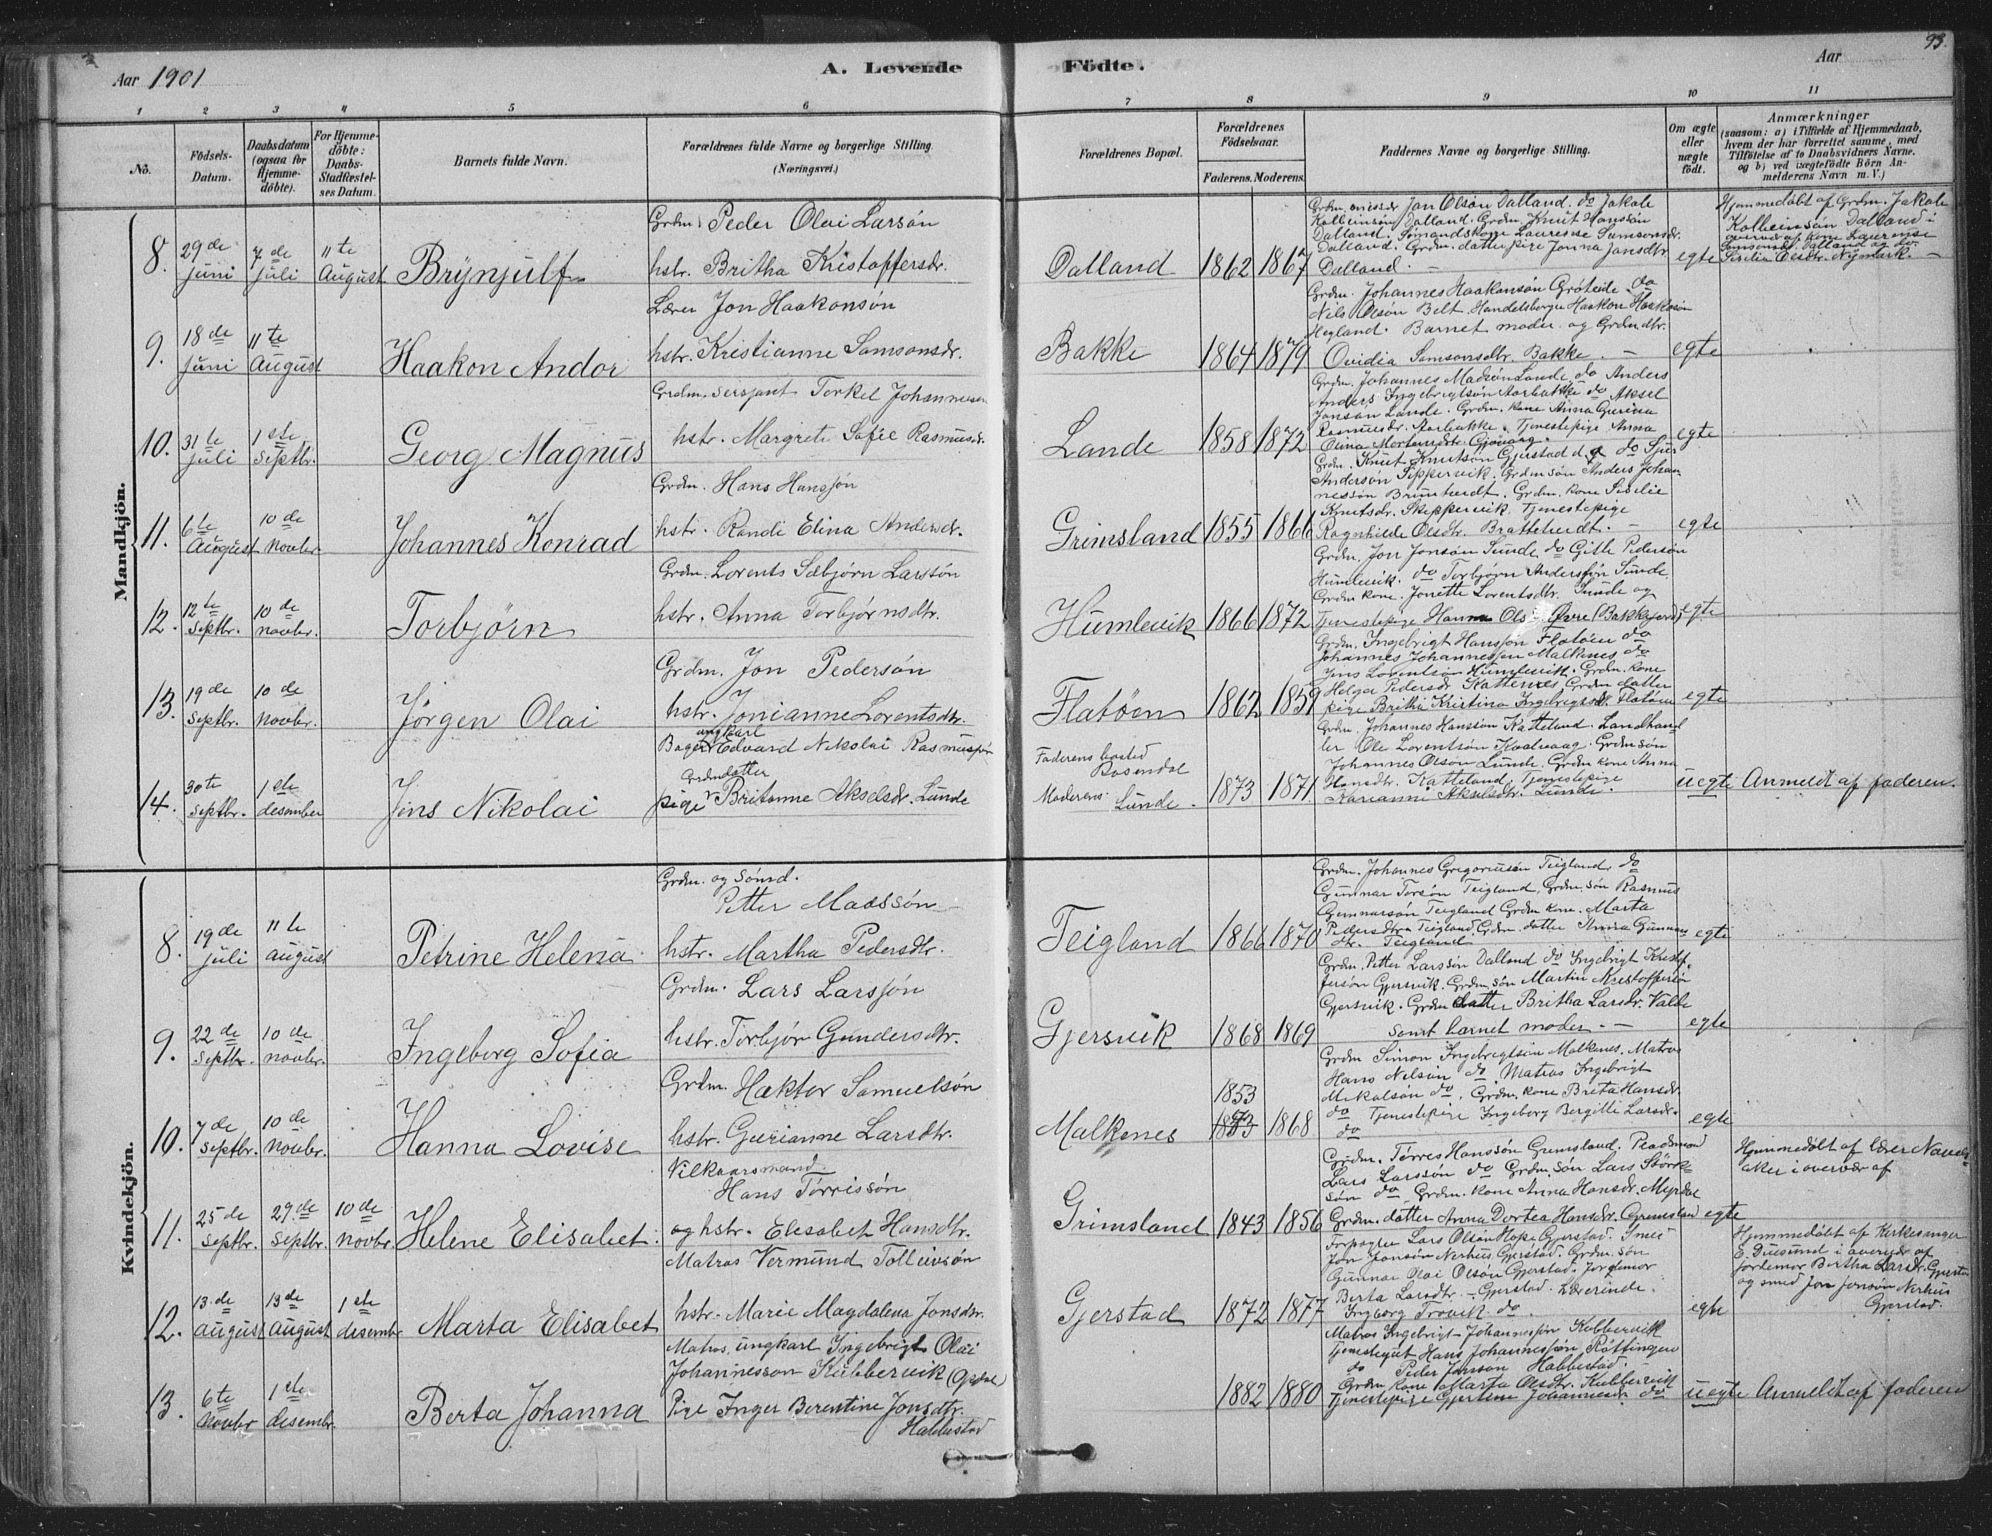 93.
Aar 1901
A. Levende Födte.
Aar
1 2 3 4 5 6 7 8 9 10 11
No.
Födsels-Datum.
Daabsdatum (ogsaa for Hjemme-döbte).
For Hjemme-döbte: Daabs-Stadfæstelses Datum.
Barnets fulde Navn.
Forældrenes fulde Navne og borgerlige Stilling. (Næringsvei.)
Forældrenes Bopæl.
Forældrenes Födselsaar.
Faderens. Moderens.
Faddernes Navne og borgerlige Stilling.
Om ægte eller uægte födt.
Anmærkninger
(saasom: a) i Tilfælde af Hjemmedaab, hvem der har forrettet samme, med Tilföielse af to Daabsvidners Navne, og b) ved uægtefödte Börn Anmelderens Navn m. V.)
Mandkjön.
8. 29de juni 7de juli 11te August Brynjulf
Grdm. Peder Olai Larsön
hstr. Britha Kristoffersdr.
Dalland 1862 1867
Jon Olsön Dalland. do Jakole
Kolbeinsön Dalland. Grdm. Knut Hanssön
Dalland. Sömandskone Laurense Samsonsdr.
Dalland. Grdm. datter pige Jonna Jonsdtr.
Dalland. –
egte
Hjemmedöbt af Grdm. Jakole
Kolbeinsön Dalland i
overvær af kone Laurense
Samsonsdr. Dalland og do.
Sisilia Olsdtr. Nymark. –
9. 18de juni 11te August Haakon Andor
Lærer Jon Haakonsön
hstr. Kristianne Samsonsdr.
Bakke 1864 1879
Grdm. Johannes Haakonsön Gröteide. do
Nils Olsön Belt. Handelsborger Haakon Haakonsön
Hegland. Barnet moder og Grdmdtr.
Ovidia Samsonsdtr. Bakke. –
egte
10. 31te juli 1ste Septbr. Georg Magnus
Grdm. Sersjant Torkel Johannessen
hstr. Margrete Sofie Rasmusdr.
Lande 1858 1872
Grdm. Johannes Madsön Lande do Anders
Anders Ingebrigtsön Aarbakke do Aksel
Jonson Lande. Grdm. kone Anna Gurina
Rasmusdr. Aarbakke. Tjenestepige Anna
Olina Mortensdtr.
egte
11. 6te August 10de Novbr. Johannes Konrad
Grdm. Hans Hansjön
hstr. Randi Elina Andersdr.
Grimsland 1855 1866
Grdm. Knut Knutsön Gjerstad do Sjur
Andersön Skippervik. Grdm sön Anders Johan-
nessön Brunthvedt. Grdm. kone Siselie
Knutsdr. Skippervik. Tjenestepige
Ragnhilde Olsdtr. Bratthvedt. –
egte
12. 12te Septbr. 10de Novbr. Torbjörn
Grdm. Lorents Sæbjörn Larssön
hstr. Anna Torbjörnsdtr.
Humlevik 1866 1872
Grdm. Jon Jonsön Sunde do Gitle Pedersön
Humlevik. do Torbjörn Andersjön Sunde.
Grdm kone. Jonette Lorentsdtr. Sunde og
Tjenestepige Hanna Ols Övre (Bakkejord)
egte
13. 19de Septbr. 10de Novbr. Jörgen Olai
Grdm. Jon Pedersön
hstr. Jonianne Lorentsdtr.
Flatöen 1862 1859
Grdm. Ingebrigt Hansjön Flatöen do
Johannes Johannesjön Malknes do
Jens Lorentsön Humlevik. Grdm. kone
Helga Pedersdr Katternes Grdm datter
pige Britha Kristina Ingebrigtsdtr. Flatöen
egte
14. 30te Septbr. 1ste desember Jens Nikolai
Bager ungkarl Edvard Nikolai Rasmusjön
Grdmdatter
pige Britanne Akselsdr. Lunde
Faderens bosted Rosendal
Moderens Lunde. 1873 1871
Grdm. Johannes Hansson Katteland. Landhand-
ler Ole Lorentsön Kaalvaag. Grdm sön
Johannes Olsön Lunde. Grdm kone Anna
Hansdtr. Katteland. Tjenestepige
Karianne Akselsdtr. Lunde.
uegte Anmeldt af faderen.
Kvindekjön.
8. 19de juli 11te August Petrine Helena
Grdm. og Sömd.
Petter Madssön
hstr. Martha Pedersdtr.
Teigland 1866 1870
Grdm. Johannes Gregoriusön Teigland, do
Gunnar Torsön Teigland, Grdm. sön Rasmus
Gunnarsön Teigland Grdm kone. Marta
Pedersdtr. Teigland. Grdm. datter Anna Gunnars
dtr. Teigland
egte
9. 22de Septbr. 10de Novbr. Ingeborg Sofia
Grdm. Lars Larsjön
hstr. Torbjör Gundersdtr.
Gjersvik 1868 1869
Grdm. Petter Larssön Dalland do Ingebrigt Kristof-
fersön Gjersvik. Grdm. sön Martin Kristoffersön
Gjersvik. Grdm datter Britha Larsdr. Valle
samt barnet moder. –
egte
10. 7de Septbr. 10de Novbr. Hanna Lovise
Grdm. Hæktor Samuelsön
hstr. Gurianne Larsdtr.
Malkenes 1853 1868
Grdm Simon Ingebrigtsön Malkenes. Matros
Hans Nelsön do. Matros Ingebrigt
Mikalsön do. Grdm. kone Brita Hansdr.
do Tjenestepige Ingeborg Bergitte Larsdr.
do
egte
11. 25de Septbr. 29de Septbr. 10de Novbr. Helene Elisabet.
Vilkaarsmand
Hans Törrissön
og hstr. Elesabet Hansdtr.
Grimsland 1843 1856
Grdm. Törres Hanssön Grimsland. Pladsmand
Lars Larssön do Grdm. sön Lars Störk-
sön do. Grdm. kone Anna Hansdr. Myrdal
Grdm. datter Anna Dortea Hansdr. Grimsland
egte
Hjemmedöbt af Lærer
aker i overvær af
12. 13de August 13de August 1ste desembr. Marta Elisabet
Matros Vermund Tollevsön
hstr. Marie Magdalena Jonsdtr.
Gjerstad 1872 1877
Lars Olsön Hope Gjerstad. Smed
Jon Jonsön Nerhus Gjerstad. Grdm. sön
Gunnar Olai Olsön Gjerstad. Jordemor
Berta Larsdtr. – Gjerstad. Lærerinde.
Ingborg do.
egte
Hjemmedöbt af Kirkesanger
E. Duesund i overvær af
Jordemor Bertha Larsdr. Gjersta
og smed Jon Jonsön Nerhus
Gjerstad.
13. 6te Novbr 1ste desembr. Berta Johanna
Matros, ungkarl Ingebrigt Olai
Johannesson Kubbervik (Opdal)
Pige Inger Berentine Jonsdtr.
Habbestad
1882 1880
Matros Ingebrigt Johannesjön Kubbervik
Tjenestegut Hans Johannesjön Röttingen
do Peder Jonson Habbestad.
Grdm kone Marta Olsdtr. Kubbervik
Tjenestepige Gjertine Johannesdr do
uegte Anmeldt af faderen